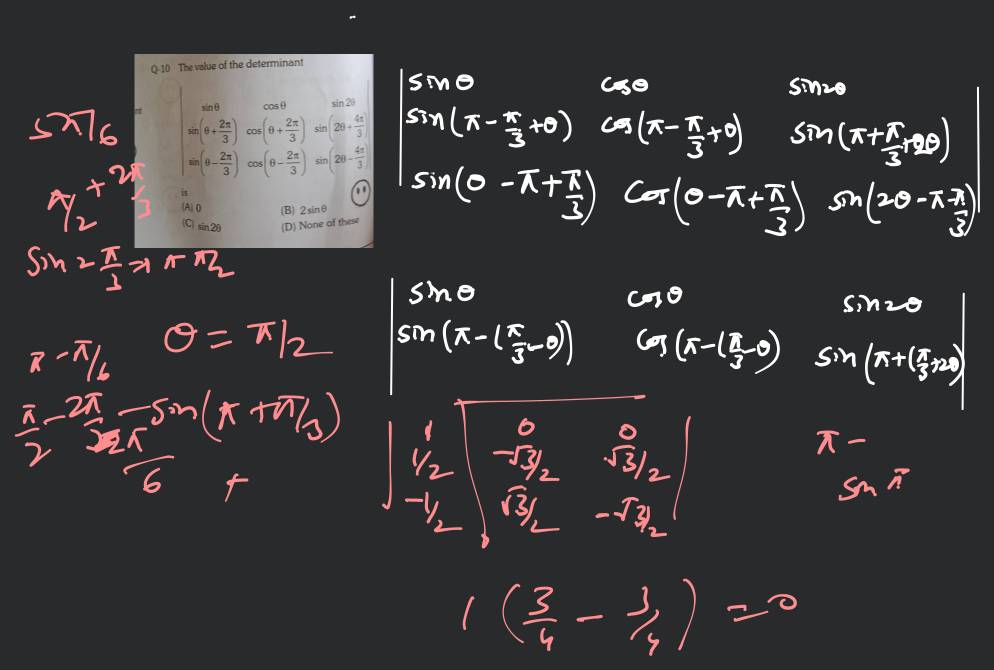 Q-10 The value of the determinant
sin θ cos θ sin 2θ
sin(θ + 2π/3) cos(θ + 2π/3) sin(2θ + 4π/3)
sin(θ − 2π/3) cos(θ − 2π/3) sin(2θ − 4π/3)
is
(A) 0 (B) 2 sin θ
(C) sin 2θ (D) None of these
5π/6
π/2 + 2π/3
sin 2π/3 → π π/2
π − π/6
θ = π/2
π/2 − 2π/3
−sin(π + π/3)
6 +
sinθ cosθ sin2θ
sin(π − π/3 + θ) cos(π − π/3 + θ) sin(π + π/3 + 2θ)
sin(θ − π + π/3) cos(θ − π + π/3) sin(2θ − π − π/3)
sinθ cosθ sin2θ
sin(π − (π/3 − θ)) cos(π − (π/3 − θ) sin(π + (π/3 + 2θ)
1 0 0
1/2 −√3/2 √3/2
−1/2 √3/2 −√3/2
π −
sin π
1 (3/4 − 3/4) = 0